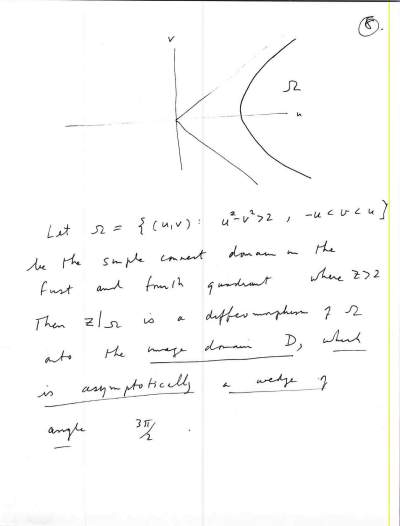 5.
v
Ω
u
Let Ω = { (u,v) : u²-v²>2 , -u<v<u }
be the simple connect domain in the
first and fourth quadrant where z>2
Then z|Ω is a diffeomorphism of Ω
onto the image domain D, which
is asymptotically a wedge of
angle 3π/2 .